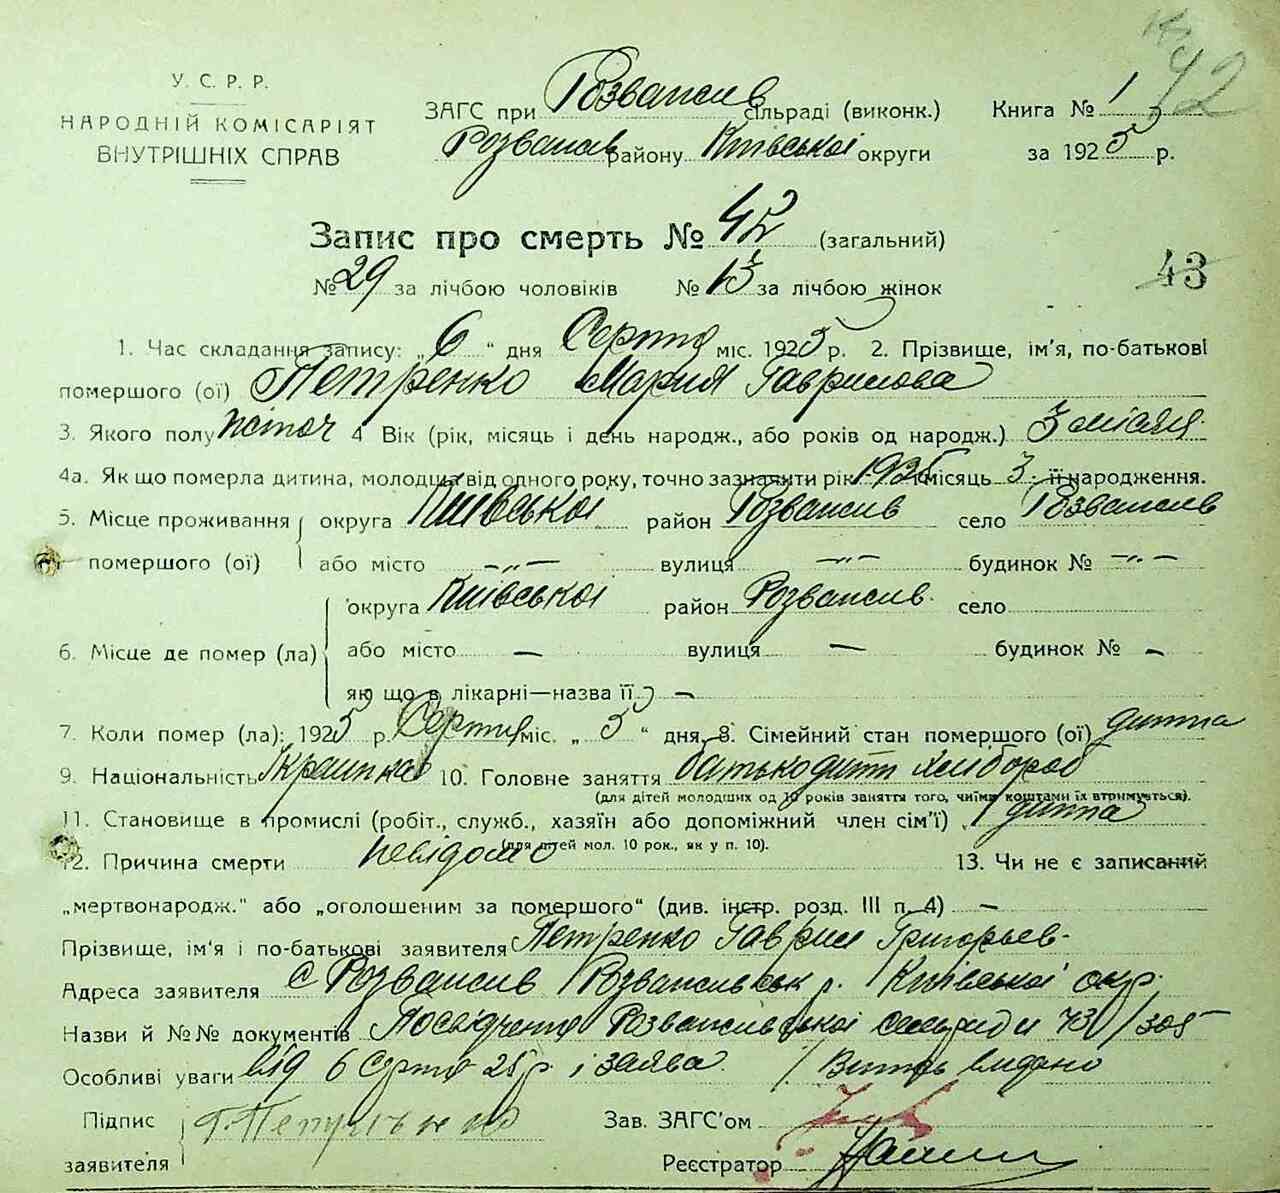 42
У. С. Р. Р.
НАРОДНІЙ КОМІСАРІЯТ
ВНУТРІШНІХ СПРАВ
ЗАГС при Розважив сільраді (виконк.)
Розважив району Київської округи
Книга № 1
за 1925 р.
Запис про смерть № 42 (загальний)
№ 29 за лічбою чоловіків № 13 за лічбою жінок
43
1. Час складання запису: „ 6 “ дня Серпня міс. 1925 р. 2. Прізвище, ім'я, по-батькові
помершого (ої) Петренко Мария Гаврилова
3. Якого полу жіноч 4 Вік (рік, місяць і день народж., або років од народж.) 3 місяця
4а. Як що померла дитина, молодша від одного року, точно зазначити рік 1925 місяць 3 її народження.
5. Місце проживання округа Київської район Розважив село Розважив
помершого (ої) або місто — „ — вулиця — „ — будинок № — „ —
округа Київської район Розважив село
6. Місце де помер (ла) або місто — вулиця — будинок № —
як що в лікарні—назва її —
7. Коли помер (ла): 1925 р. Серпня міс. „ 5 “ дня 8. Сімейний стан помершого (ої) дитта
9. Національність Украинка 10. Головне заняття батько дитт хлібороб
(для дітей молодших од 10 років заняття того, чиїми коштами їх втримується).
11. Становище в промислі (робіт., служб., хазяїн або допоміжний член сім'ї) дитта
(для дітей мол. 10 рок., як у п. 10).
12. Причина смерти невідомо 13. Чи не є записаний
„мертвонародж.“ або „оголошеним за помершого“ (див. інстр. розд. III п. 4) —
Прізвище, ім'я і по-батькові заявителя Петренко Гаврил Григорьев-
Адреса заявителя с Розважив Розважівськ р. Київської окр.
Назви й №№ документів Посвідчення Розважівської сільради 430/305
Особливі уваги від 6 Серпня 25 р. і заява / Витяг видано
Підпис
заявителя Г. Петренко
Зав. ЗАГС'ом
Реєстратор